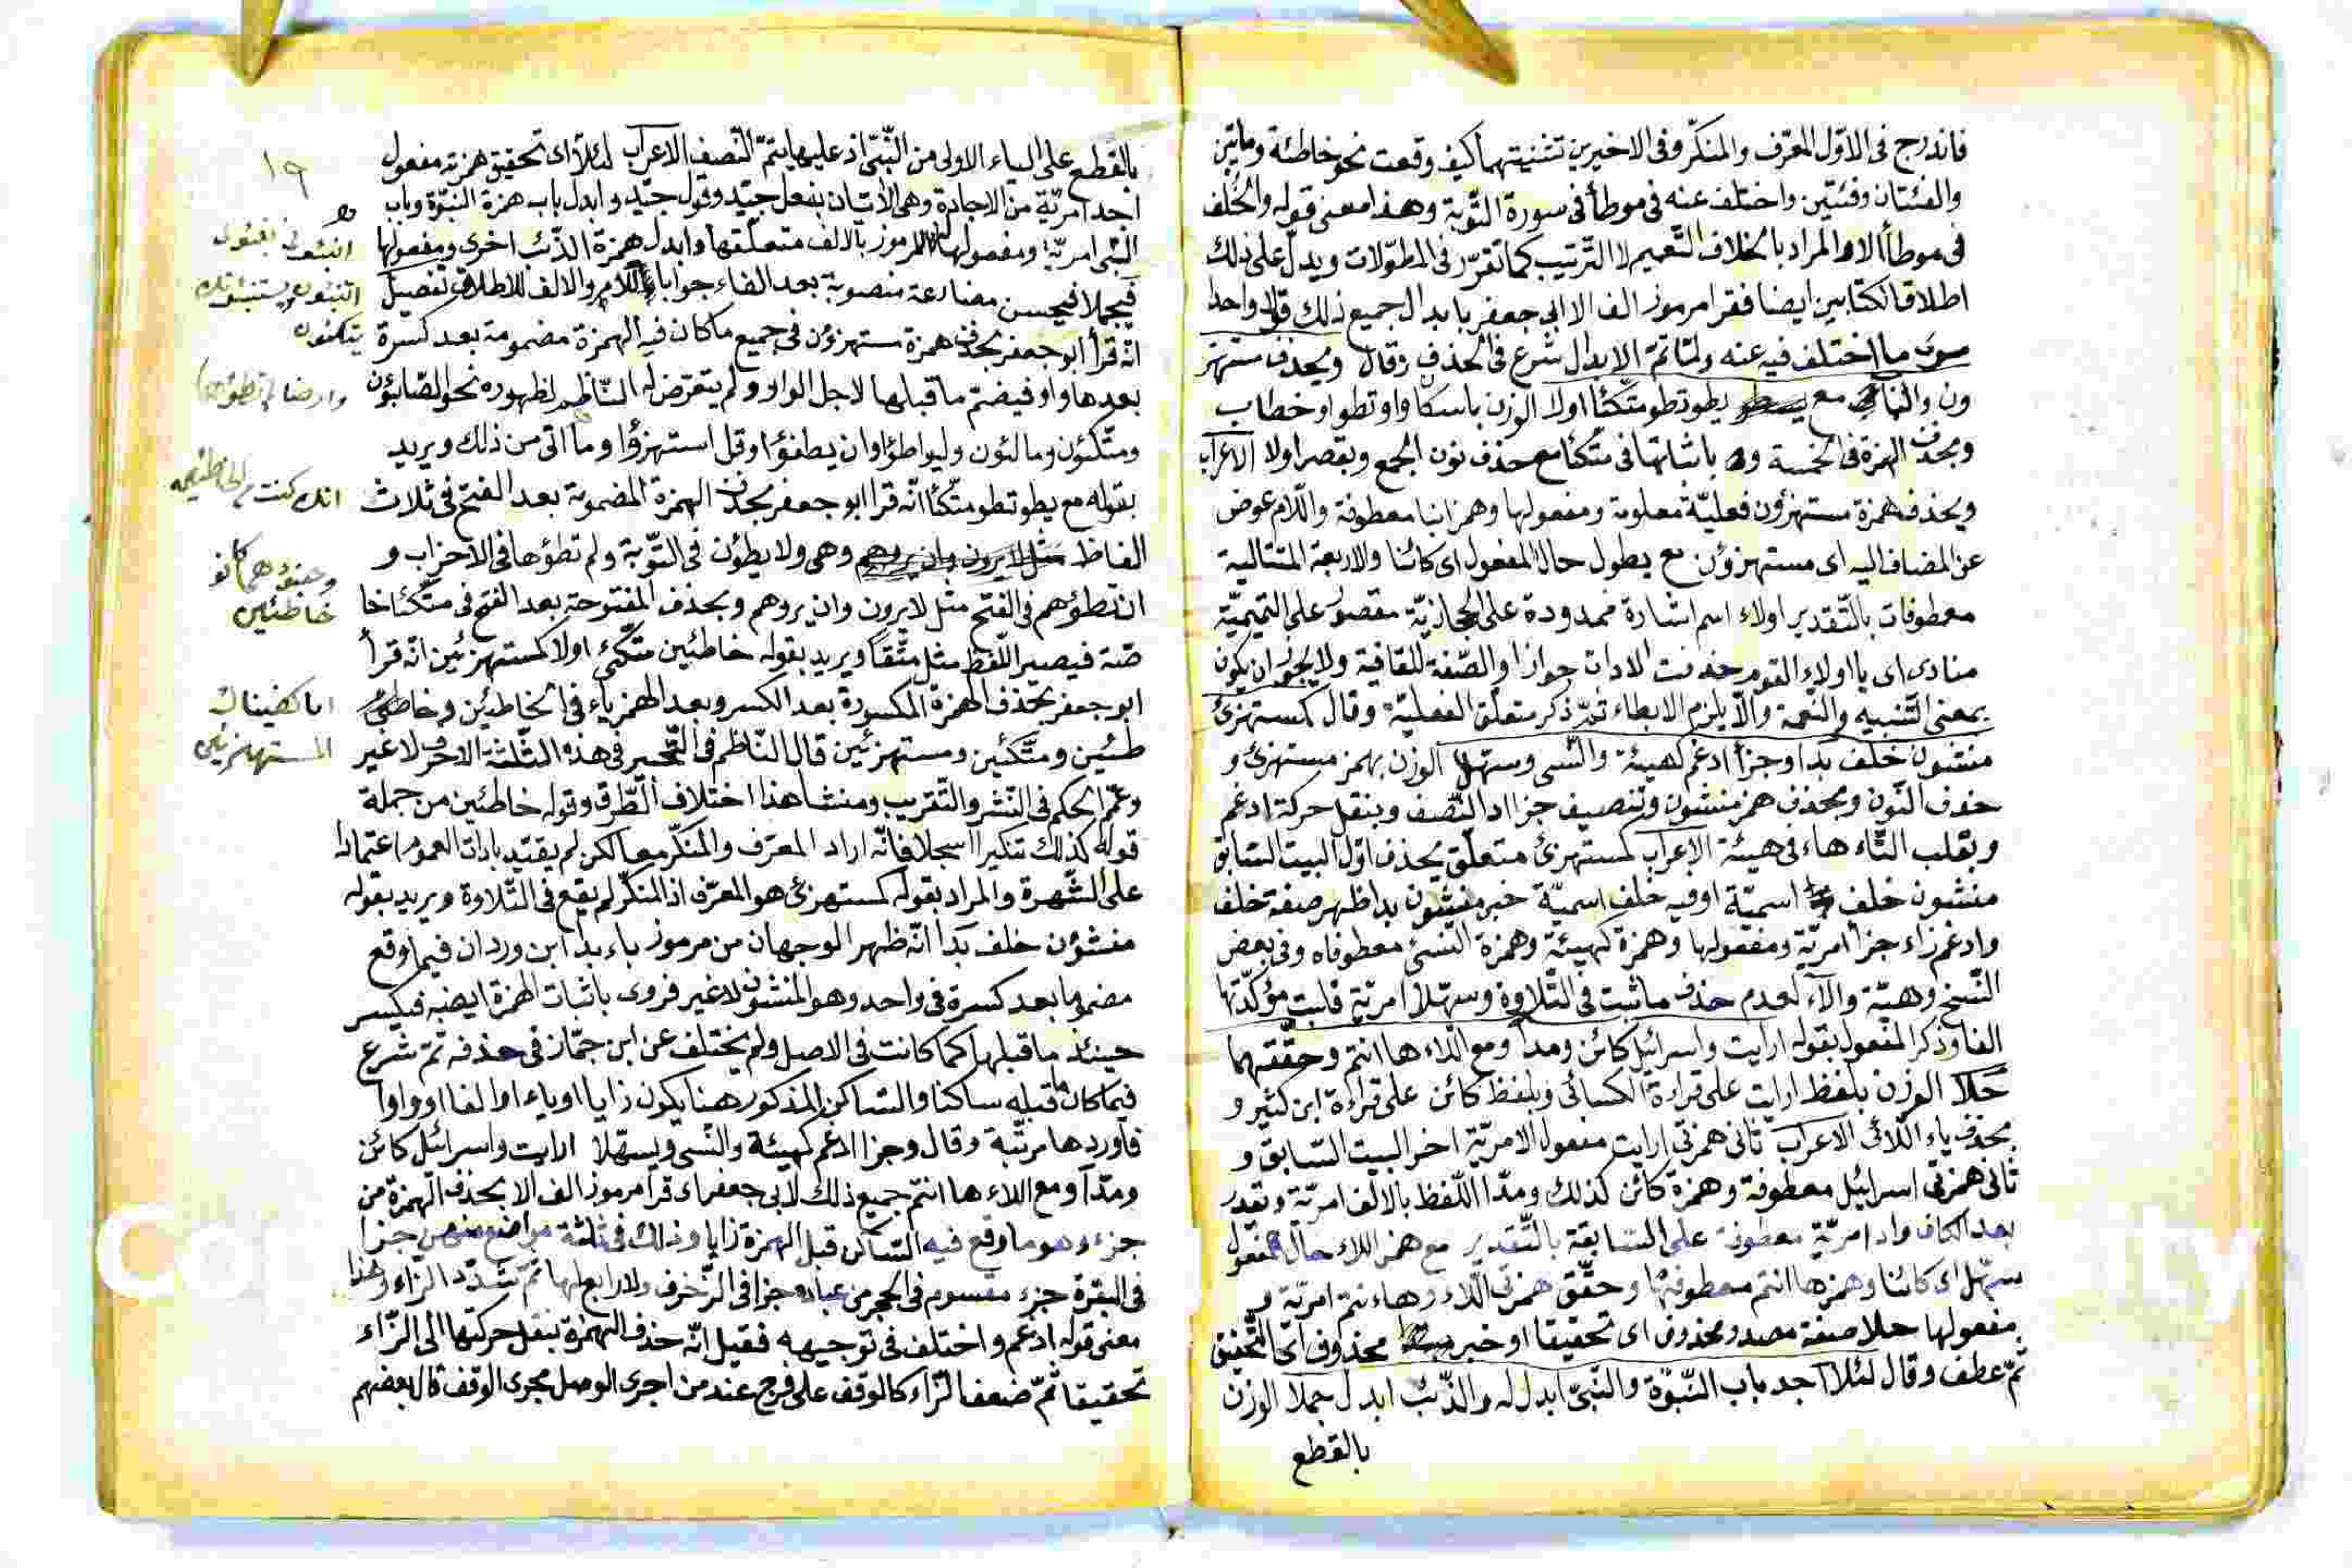 فاندرج فى الاوّل المعّرف والمنكّر وفى الاخيرين تثنيتهما كيف وقعت نحو خاطئة ومائتين
والفئتان وفئتين واختلف عنه فى موطأ فى سورة التّوبة وهذا معنى قوله والخلف
فى موطأ الا والمراد بالخلاف التّعميم لا التّرتيب كما تقرّر فى المطوّلات ويدلّ على ذلك
اطلاق الكتابين ايضا فقرا مرموز الف الا ابى جعفر بابدال جميع ذلك قولا واحدا
سوى ما اختلف فيه عنه ولمّا تمّ الابدال شرع فى الحذف وقال ويحذف مستهز
ون والباقى مع يطو تطو متكئا اولا الوزن باسكا واو تطو او خطاب
وبحذف الهمزة فى الخمسة و باثباتها فى متّكئا مع حذف نون الجمع وبقصر اولا الاعراب
ويحذف همزة مستهزؤن فعليّة معلومة ومفعولها وهمز انبا معطوفة واللّام عوض
عن المضاف اليه اى مستهزؤن مع يطو حال المفعول اى كائنا والاربعة المتتالية
معطوفات بالتّقدير اولاء اسم اشارة فممدودة على الحجازيّة مقصور على التميميّة
منادى اى يا اولاء القوم حذفت الادات جوازا والصّفة للقافية ولا يجوز ان يكون
بمعنى التّنبيه والنعمة والّا يلزم الابطاء ثمّ ذكر متعلّق الفعليّة وقال كمستهزئ
منشون خلف بدا وجزأ ادغم كهيئة والنّسى وسهّلا الوزن بهمز مستهزئ و
حذف النّون وبحذف همز منشون وتنصيف جزا اد النّصف وبنقل حركة ادغم
وبقلب التّاء هاء فى هيئة الاعراب كمستهزئ متعلّق يحذف اوّل البيت السّابق
منشون خلف اسميّة او فيه خلف اسميّة خبر منشون بدا ظهر صفة خلف
وادغم زاء جزأ امريّة ومفعولها وهمزة كهيئة وهمزة النّسئ معطوفاه وفى بعض
النّسخ وهيئة والّا لعدم حذف ما ثبت فى التّلاوة وسهّلا امريّة قلبت مؤكّدتها
الفا وذكر المفعول بقوله ارايت واسرائيل كائن ومدا ومع اللّاء ها انتم وحقّقهما
حلا الوزن بلفظ ارايت على قراءة الكسائى وبلفظ كائن على قراءة ابن كثير و
بحذف ياء اللّائى الاعراب ثانى همزتى ارايت مفعول الامريّة اخر البيت السّابق و
ثانى همزتى اسرائيل معطوفة وهمزة كائن كذلك ومدّا اللّفظ بالالف امريّة وتقدر
بعد الكاف واد امريّة معطوفة على السّابقة بالتّقدير مع همز اللاء حال المفعول
سهّل اى كائنا وهمزها انتم معطوفتها وحقّق همزتى اللّاء وهاءنتم امريّة و
مفعولها حلا صفة مصدر محذوف اى تحقيقا او خبر محذوف اى التّحقيق
ثمّ عطف وقال لئلا اجد باب النّبوّة والنّبىّ ابدل له والذّئب ابدل جملا الوزن
بالقطع
١٩
بالقطع على الياء الاولى من النّبىّ اذ عليها يتمّ النّصف الاعراب لئلّا اى تحقيق همزته مفعول
اجد امريّة من الاجادة وهى الاتيان بفعل جيّد وقول جيّد وابدل باب همزة النّبوّة وباب
النّبى امريّة ومفعولها المرموز بالالف متعلّقها وابدل همزة الذّئب اخرى ومفعولها
فيجملا فيحسن مضارعة منصوبة بعد الفاء جوابا للامر والالف للاطلاق تفصيل
انّه قرأ ابو جعفر بحذف همزة مستهزؤن فى جميع ما كان فيه الهمزة مضمومة بعد كسرة
بعدها واو فيضمّ ما قبلها لاجل الواو ولم يتعرّض له النّاظم لظهوره نحو الصّابؤن
ومتّكئون ومالئون وليواطؤا وان يطفؤا وقل استهزؤا وما اتى من ذلك ويريد
بقوله مع يطو تطو متّكئا انّه قرا ابو جعفر بحذف الهمزة المضمومة بعد الفتح فى ثلاث
الفاظ وهى ولا يطؤن فى التّوبة ولم تطؤها فى الاحزاب و
ان تطؤهم فى الفتح مثل لا يرون وان يروهم وبحذف المفتوحة بعد الفتح فى متّكئا خا
صّة فيصير اللّفظ مثل متّقا ويريد بقوله خاطئين متّكئ اولا كمستهزئين انّه قرأ
ابو جعفر بحذف الهمزة المكسورة بعد الكسر وبعد الهمز ياء فى الخاطئين وخاطئين
طئين ومتّكئين ومستهزئين قال النّاظم فى التّحبير فى هذه الثّلثة الاحرف لا غير
وعمّم الحكم فى النّشر والتّقريب ومنشأ هذا اختلاف الطّرق وقوله خاطئين من جملة
قوله كذلك تنكيرا اسجلا فانّه اراد المعرّف والمنكّر معا لكن لم يقيّد بادات العموم اعتمادا
على الشّهرة والمراد بقوله كمستهزئ هو المعرّف اذ المنكّر لم يقع فى التّلاوة ويريد بقوله
منشؤن خلف بدا انّه ظهر الوجهان من مرموز باء بدا ابن وردان فيما وقع
مضموما بعد كسرة فى واحد وهو المنشؤن لا غير فروى باثبات الهمزة ايضا فيكسر
حينئذ ما قبلها كما كانت فى الاصل ولم يختلف عن ابن جمّاز فى حذفه ثمّ شرع
فيما كان ما قبله ساكنا والسّاكن المذكور هنا يكون زايا او ياء او الفا او واوا
فاوردها مرتّبة وقال وجزأ ادغم كهيئة والنّسى ويسهّلا ارايت واسرائيل كائن
ومدّا ومع اللاء ها انتم جميع ذلك لابى جعفر اى قرا مرموز الف الا بحذف الهمزة من
جزء وهو ما وقع فيه السّاكن قبل الهمزة زايا وذلك فى ثلثة مواضع منهن جزأ
فى البقرة جزء مقسوم فى الحجر من عباده جزا فى الزّخرف ولا رابع لها ثمّ تشدّد الزّاء وهذا
معنى قوله ادغم واختلف فى توجيهه فقيل انّه حذف الهمزة بنقل حركتها الى الزّاء
تحقيقا ثمّ ضعف الزّاء كالوقف على فرج عند من اجرى الوصل مجرى الوقف قال بعضهم
يتكئون
انك كنت الخاطئين
وجنودهما كانوا
خاطئين
انا كفيناك
المستهزئين